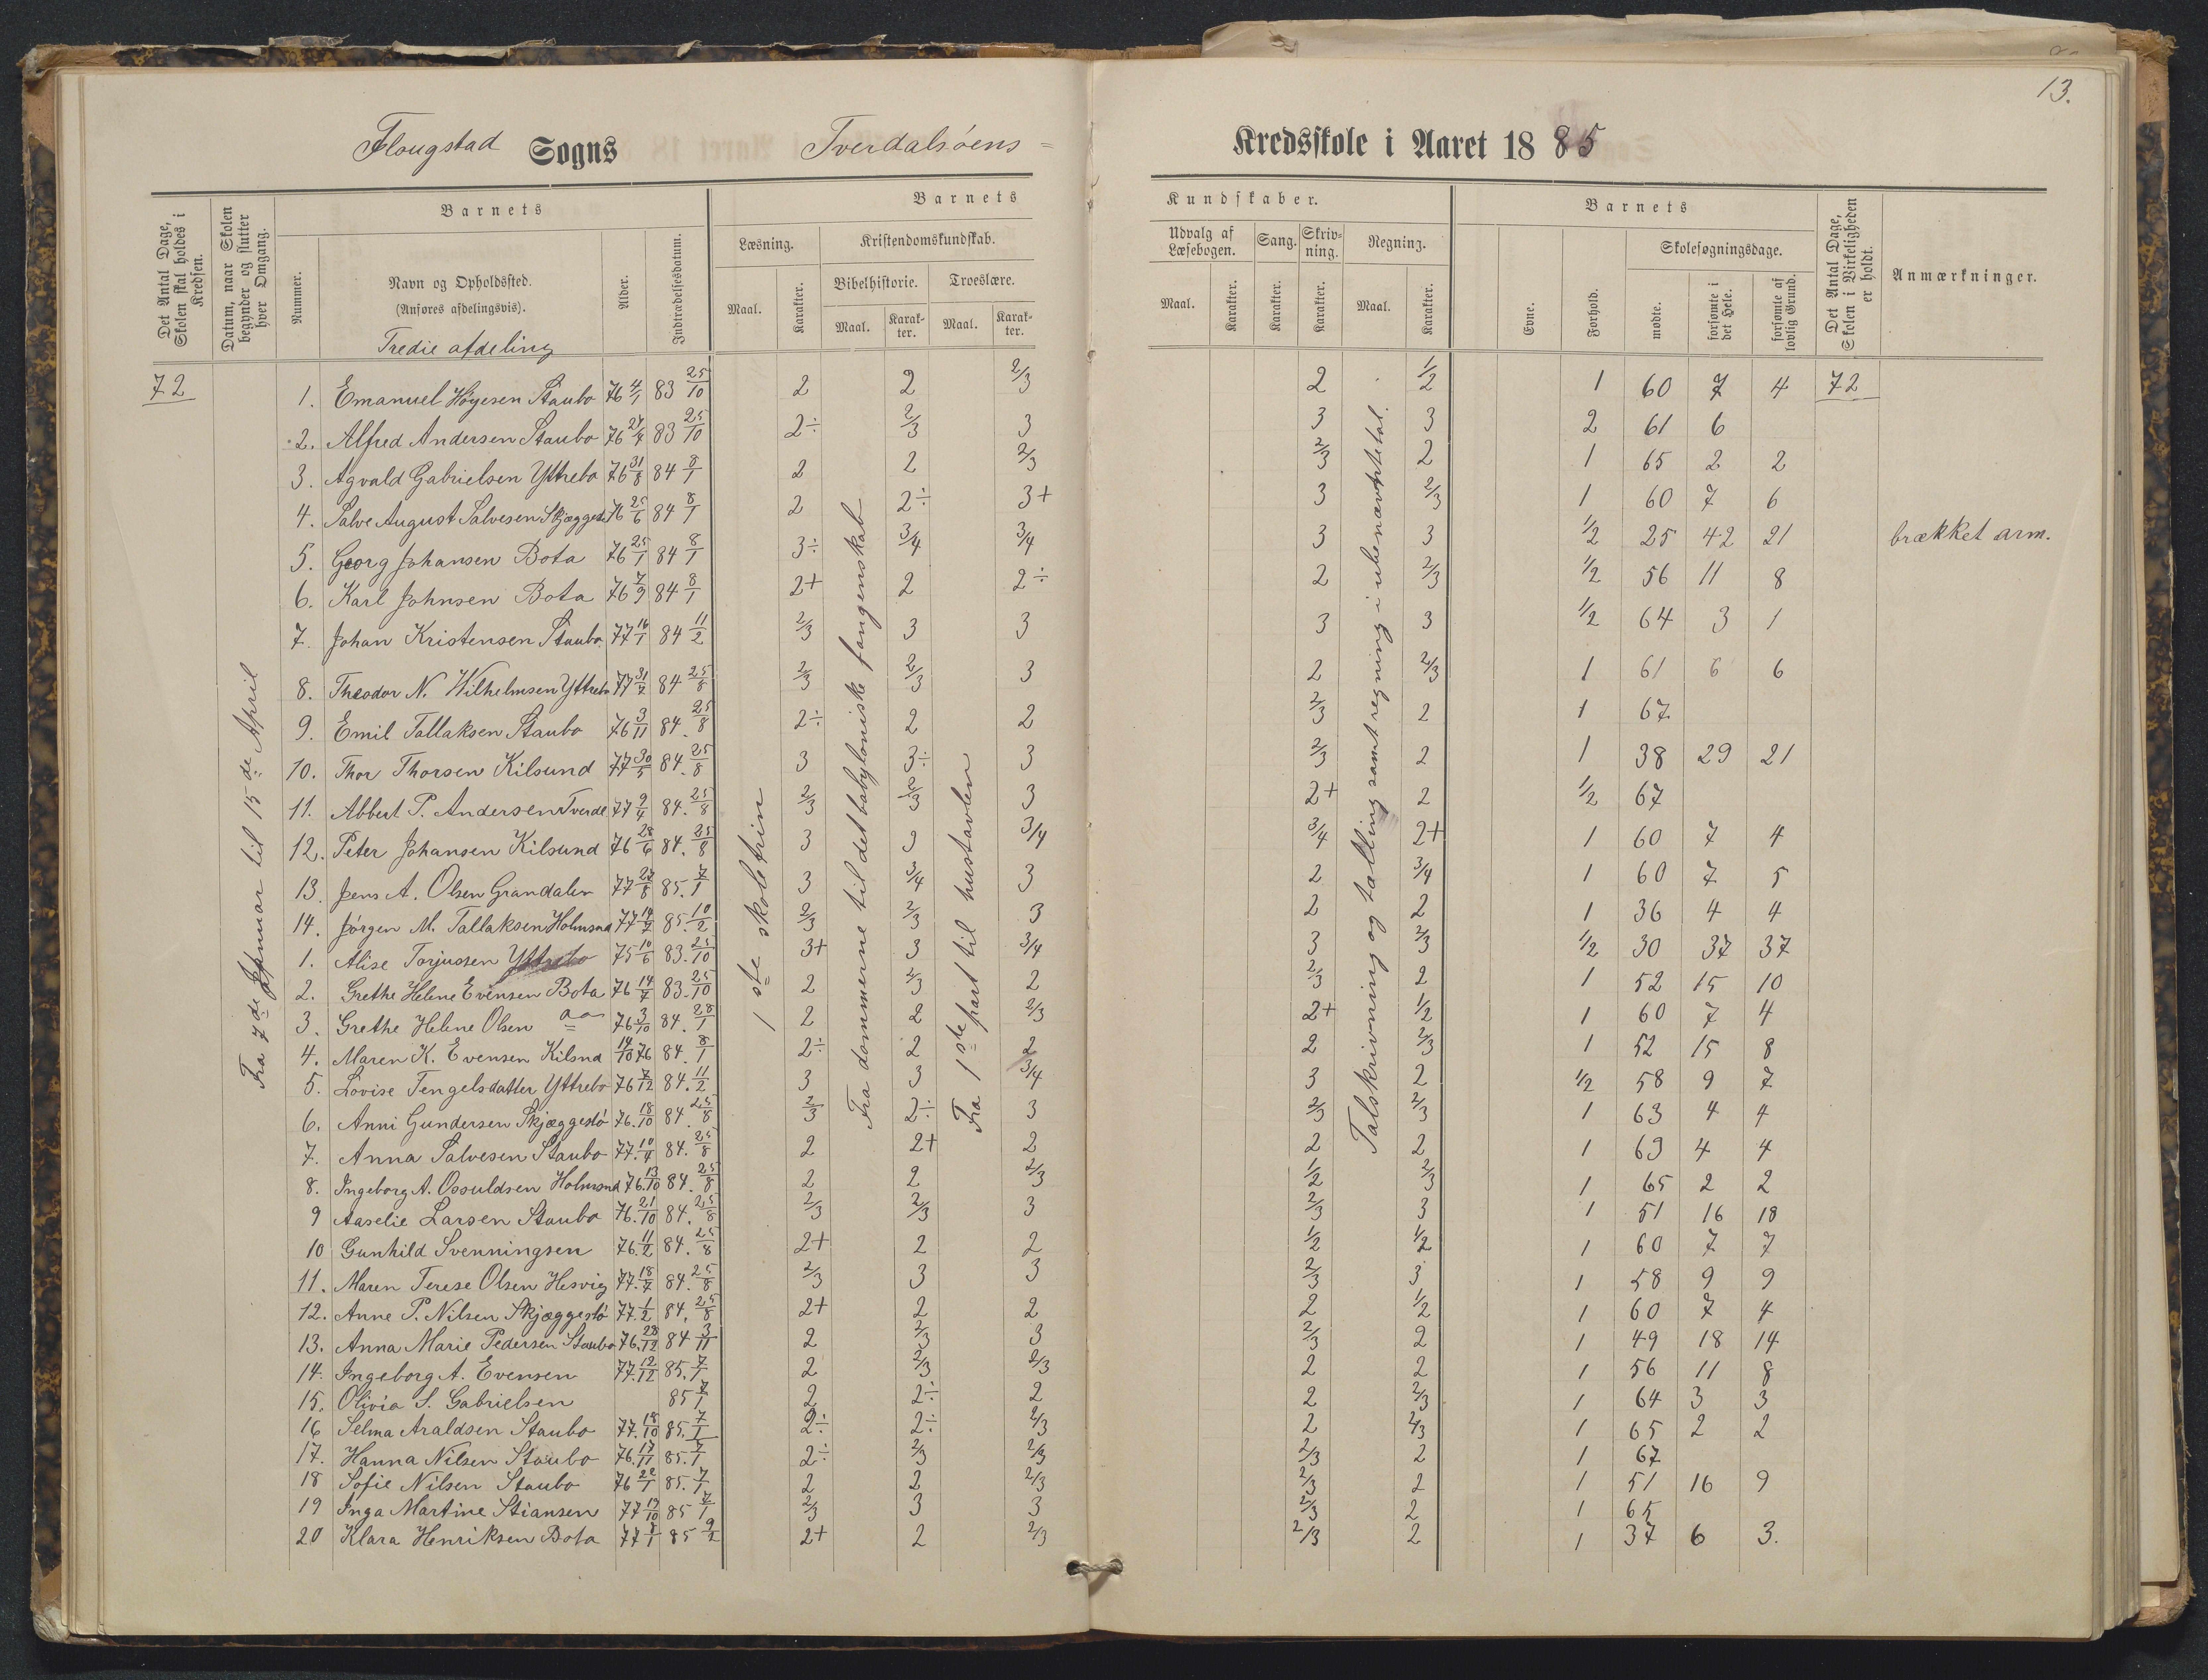 13.
Flougstad Sogns Tverdalsöens = Kredsskole i Aaret 1885
Det Antal Dage, Skolen skal holdes i Kredsen.
Datum, naar Skolen begynder og slutter hver Omgang.
Barnets
Nummer.
Navn og Opholdssted.
(Anføres afdelingsvis).
Tredie afdeling
Alder.
Indtrædelsesdatum.
Barnets Kundskaber.
Læsning.
Maal.
Karakter.
Kristendomskundskab.
Bibelhistorie.
Maal.
Karakter.
Troeslære.
Maal.
Karakter.
Udvalg af Læsebogen.
Maal.
Karakter.
Sang.
Karakter.
Skrivning.
Karakter.
Regning.
Maal.
Karakter.
Barnets
Evne.
Forhold.
Skolesøgningsdage.
mødte.
forsømte i det Hele.
forsømte af lovlig Grund.
Det Antal Dage, Skolen i Virkeligheden er holdt.
Anmærkninger.
72
Fra 7de Januar til 15de April
1ste skoletrin
Fra dommerne til det babyloniske fangenskab
Fra 1ste part til hustavlen
Talskrivning og tælling samt regning i ubenævnte tal.
1. Emanuel Høyesen Staubo 76 4/1 83 25/10 2 2 2/3 2 1/2 1 60 7 4 72
2. Alfred Andersen Staubo 76 83 25/10 2÷ 2/3 3 3 3 2 61 6
3. Agvald Gabrielsen Yttrebo 76 31/8 84 8/1 2 2 2/3 2/3 2 1 65 2 2
4. Salve August Salvesen 76 25/6 84 8/1 2 2÷ 3+ 3 2/3 1 60 7 6
5. Georg Johansen Bota 76 25/1 84 8/1 3÷ 3/4 3/4 3 3 1/2 25 42 21 brækket arm.
6. Karl Johnsen Bota 76 7/9 84 8/1 2+ 2 2÷ 2 2/3 1/2 56 11 8
7. Johan Kristensen Staubo. 77 16/1 84 11/2 2/3 3 3 3 3 1/2 64 3 1
8. Theodor N. Wilhelmsen Yttrebo 77 31/7 84 25/8 2/3 2/3 3 2 2/3 1 61 6 6
9. Emil Tallaksen Staubo 76 3/11 84. 25/8 2÷ 2 2 2/3 2 1 67
10. Thor Thorsen Kilsund 77 30/5 84. 25/8 3 3÷ 3 2/3 2 1 38 29 21
11. Abbert P. Andersen Tverdal 77 9/4 84. 25/8 2/3 2/3 3 2+ 2 1/2 67
12. Peter Johansen Kilsund 76 28/6 84. 25/8 3 3 3/4 3/4 2+ 1 60 7 4
13. Jens A. Olsen Grandalen 77 27/8 85. 7/1 3 3/4 3 2 3/4 1 60 7 5
14. Jørgen M. Tallaksen Holmsnd 77 14/7 85. 10/2 2/3 2/3 3 2 2 1 36 4 4
1. Alise Torjussen Yttrebo 75 10/6 83. 25/10 3+ 3 3/4 3 2/3 1/2 30 37 37
2. Grethe Helene Evensen Bota 76 14/7 83. 25/10 2 2/3 2 2/3 2 1 52 15 10
3. Grethe Helene Olsen 76 3/10 84. 28/1 2 2 2/3 2+ 1/2 1 60 7 4
4. Maren K. Evensen Kilsnd 14/10 76 84. 8/1 2÷ 2 2 2 2/3 1 52 15 8
5. Lovise Tengelsdatter Yttrebo 76 7/12 84. 11/2 3 3 3/4 3 2 1/2 58 9 7
6. Anni Gundersen Skjæggestö 76. 18/10 84. 25/8 2/3 2÷ 3 2/3 2/3 1 63 4 4
7. Anna Salvesen Staubo 77. 10/4 84. 25/8 2 2+ 2 2 2 1 63 4 4
8. Ingeborg A. Osouldsen Holmsnd 76. 13/10 84. 25/8 2 2 2/3 1/2 2/3 1 65 2 2
9 Aaselie Larsen Staubo 76. 21/10 84. 25/8 2/3 2/3 3 2/3 3 1 51 16 18
10 Gunhild Svenningsen 76. 11/2 84. 25/8 2+ 2 2 1/2 1/2 1 60 7 7
11. Maren Terese Olsen Hesvig 77. 18/7 84. 25/8 2/3 3 3 2/3 3 1 58 9 9
12. Anne P. Nilsen Skjæggestö 77. 1/2 84. 25/8 2+ 2 2 2 1/2 1 60 7 4
13. Anna Marie Pedersen Staubo 76. 28/12 84 3/11 2 2/3 3 2/3 2 1 49 18 14
14. Ingeborg A. Evensen 77. 12/12 85. 7/1 2 2/3 2/3 2 2 1 56 11 8
15. Olivia S. Gabrielsen 85 7/1 2 2÷ 2 2 2/3 1 64 3 3
16 Selma Araldsen Staubo 77. 18/10 85. 7/1 2÷ 2÷ 2/3 2 2/3 1 65 2 2
17. Hanna Nilsen Staubo 76. 17/11 85. 7/1 2÷ 2/3 2/3 2/3 2 1 67
18 Sofie Nilsen Staubo 76 22/1 85. 7/1 2 2 2/3 2/3 2 1 51 16 9
19 Inga Martine Stiansen 77 19/10 85 7/1 2/3 3 3 2/3 2 1 65
20 Klara Henriksen Bota 77 7/1 85 9/2 2+ 2 2/3 2/3 2 1 37 6 3.